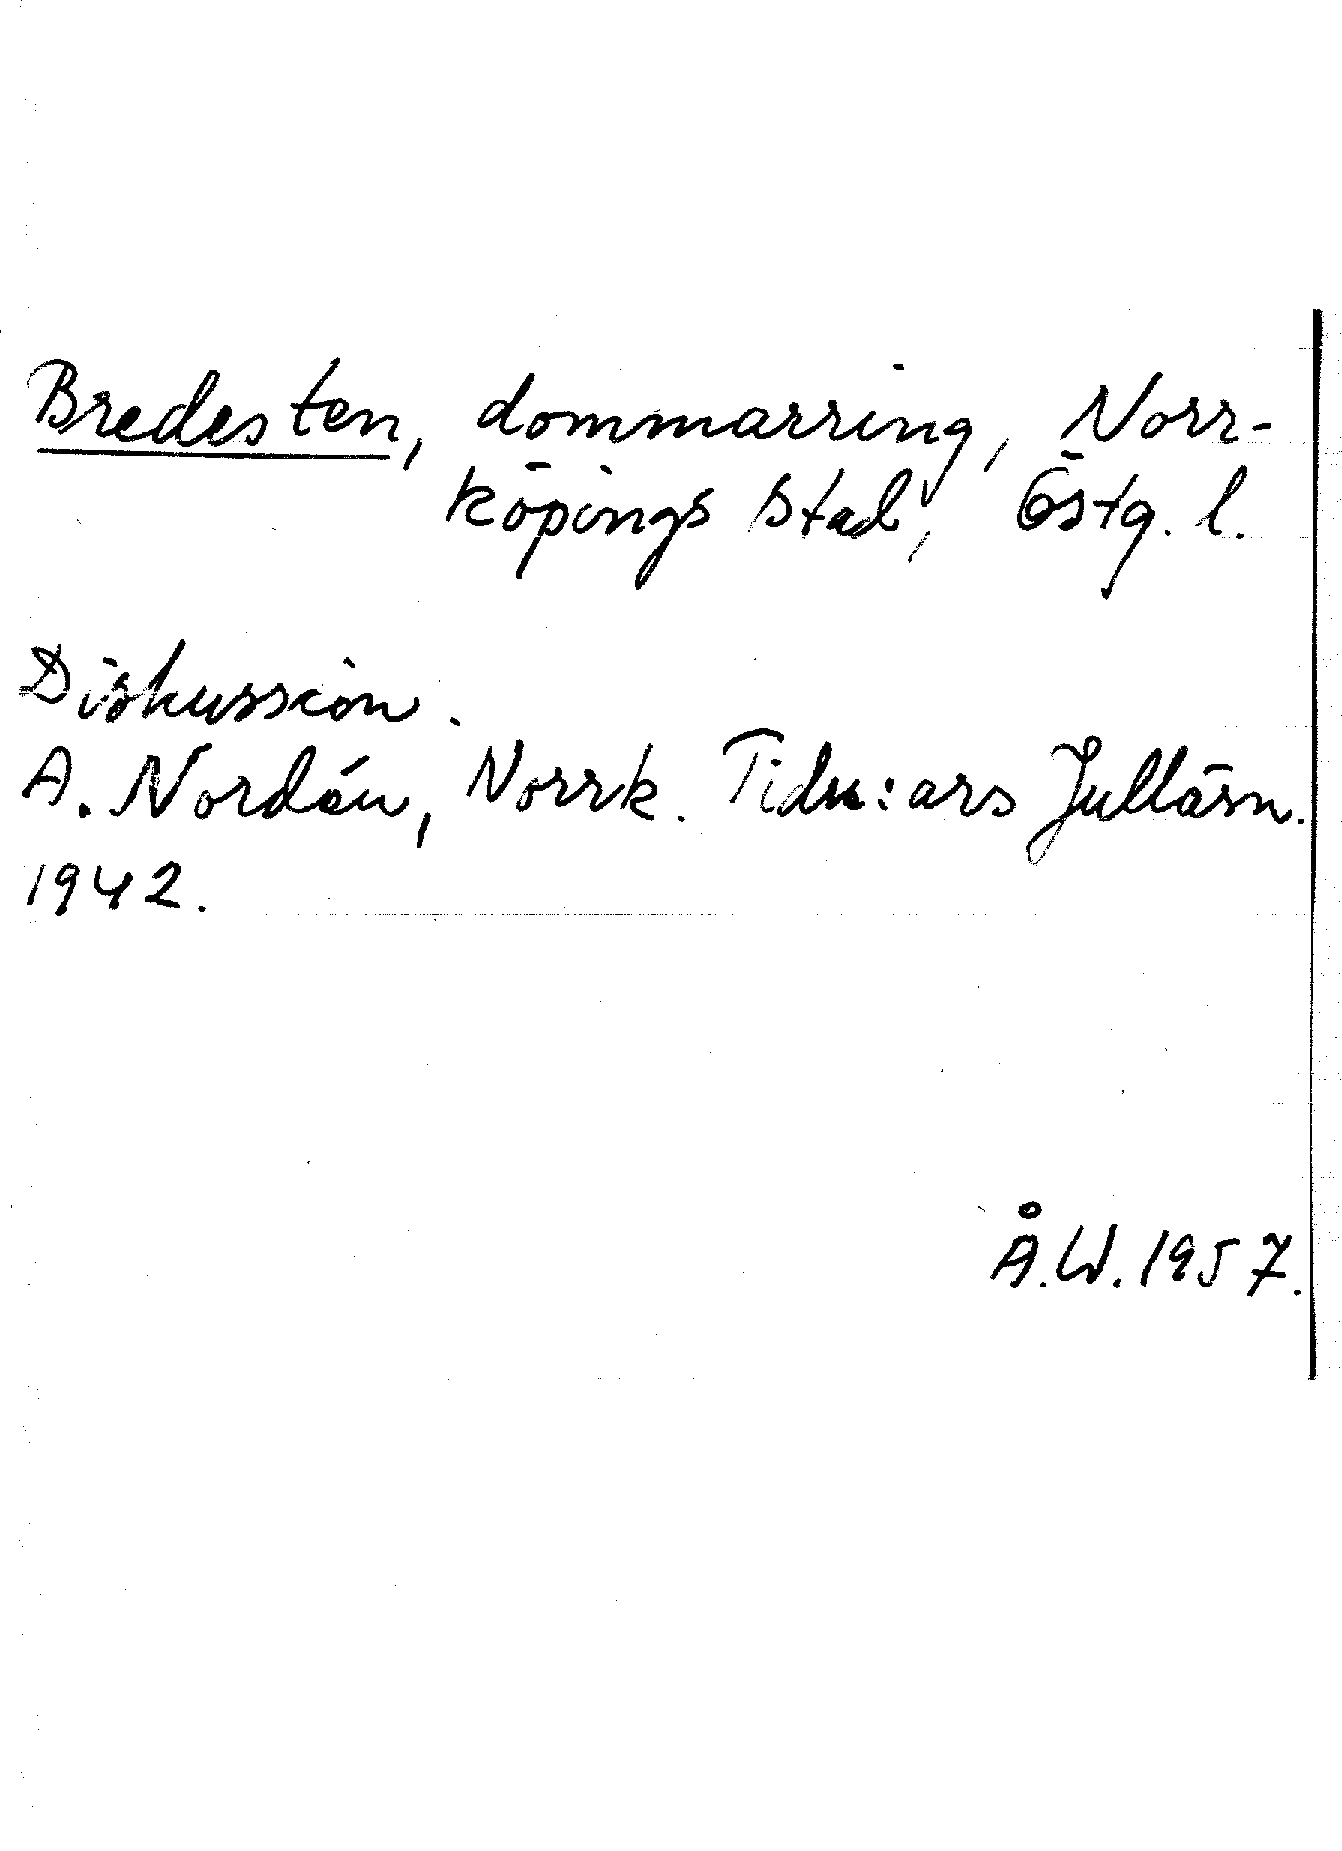 Bredesten, dommarring, Norr-
köpings stad, Östg. l.
Diskussion.
A. Nordén, Norrk. Tidn:ars Julläsn.
1942.
Å.W. 1957.